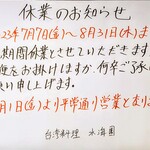 休業のお知らせ
23年7月7日(金)〜8月31日(木)ま
期間休業とさせていただきます
をお掛けますが、何卒ご了承
い申し上げます。
月1日(金)より平常通り営業となりま
台湾料理 水海園